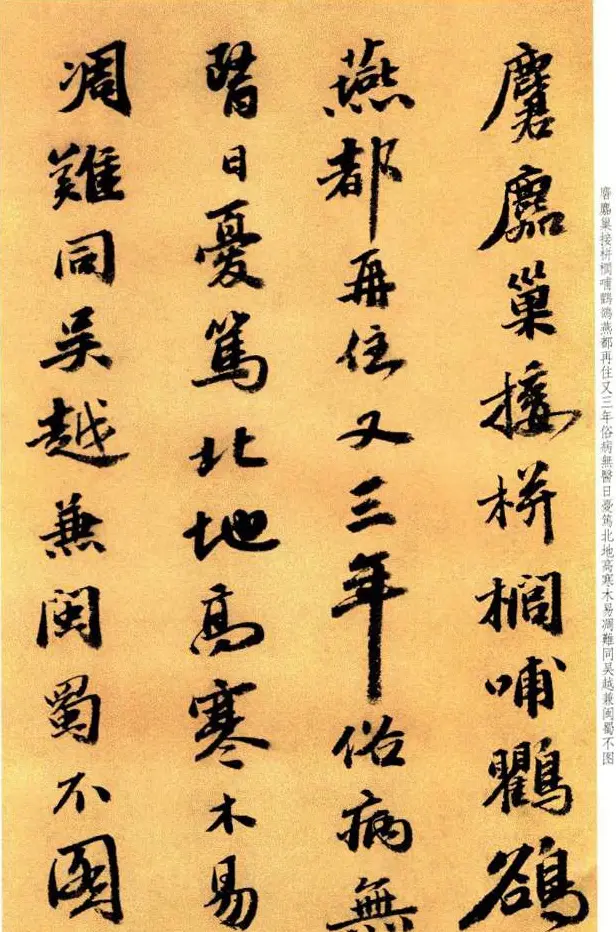 麏麚巢接栟櫚哺鸜鵒
燕都再住又三年俗病無
醫日憂篤北地高寒木易
凋難同吳越兼閩蜀不圖
麏麚巢接栟櫚哺鸜鵒燕都再住又三年俗病無醫日憂篤北地高寒木易凋難同吳越兼閩蜀不图